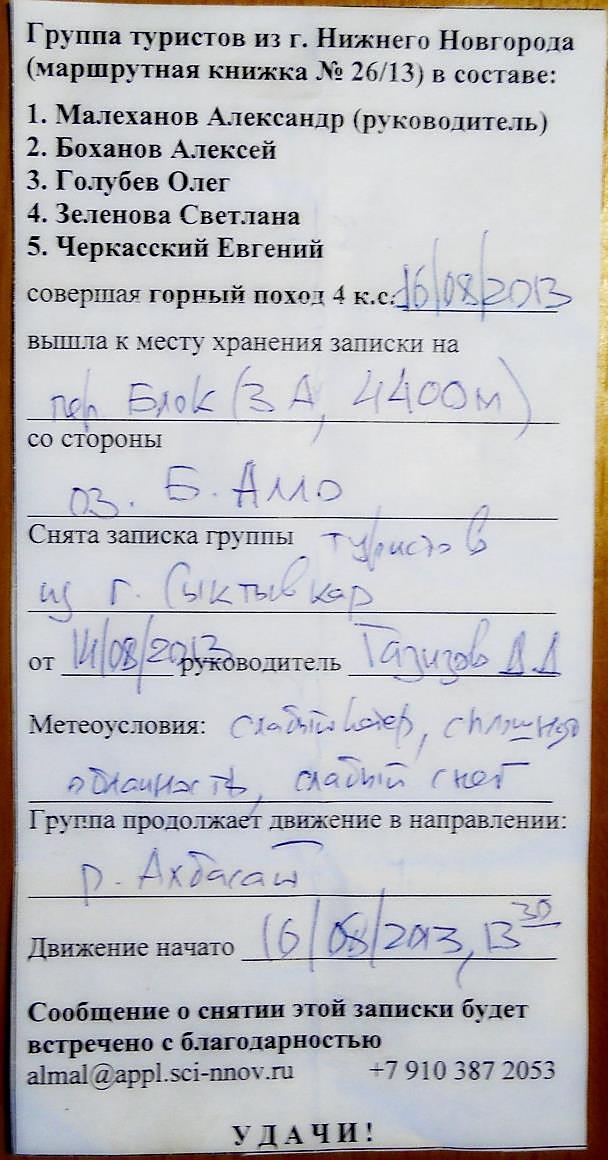 Группа туристов из г. Нижнего Новгорода
(маршрутная книжка № 26/13) в составе:
1. Малеханов Александр (руководитель)
2. Боханов Алексей
3. Голубев Олег
4. Зеленова Светлана
5. Черкасский Евгений
совершая горный поход 4 к.с. 16/08/2013
вышла к месту хранения записки на
пер Блок (3А, 4400м)
со стороны
оз. Б. Алло
Снята записка группы туристов
из г. Сыктывкар
от 14/08/2013 руководитель Газизов Д.Д
Метеоусловия: слабый ветер, сплошная
облачность, слабый снег
Группа продолжает движение в направлении:
р. Ахбасай
Движение начато 16/08/2013, 13 30
Сообщение о снятии этой записки будет
встречено с благодарностью
almal@appl.sci-nnov.ru +7 910 387 2053
УДАЧИ!